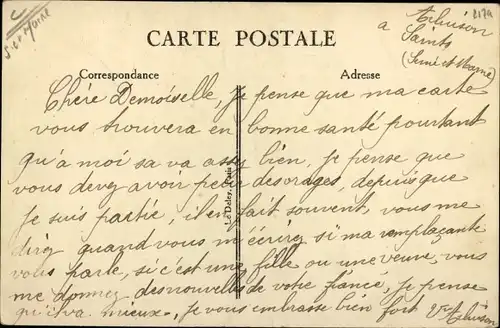 S. et Marne
2179
à Saints
(Seine et Marne)
CARTE POSTALE
Correspondance
Adresse
Chère Demoiselle, je pense que ma carte
vous trouvera en bonne santé pourtant
qu'à moi sa va assez bien, je pense que
vous devez avoir peur des orages, depuis que
je suis partie, il en fait souvent, vous me
direz quand vous m'écrirez si ma remplaçante
vous parle, si c'est une fille ou une veuve, vous
me donnez des nouvelles de votre fiancé, je pense
qu'il va mieux. je vous embrasse bien fort Vve
Le Deley, Paris